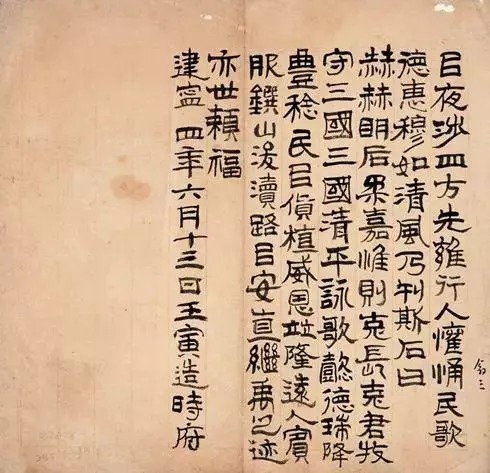 㠯夜涉四方无雍行人懽悀民歌
德惠穆如清風乃刊斯石曰
赫赫明后柔嘉惟則克長克君牧
守三國三國清平詠歌懿德瑞降
豐稔民㠯貨植威恩竝隆遠人賓
服鐉山浚瀆路㠯安直繼禹之迹
亦世賴福
建寧四年六月十三日壬寅造時府